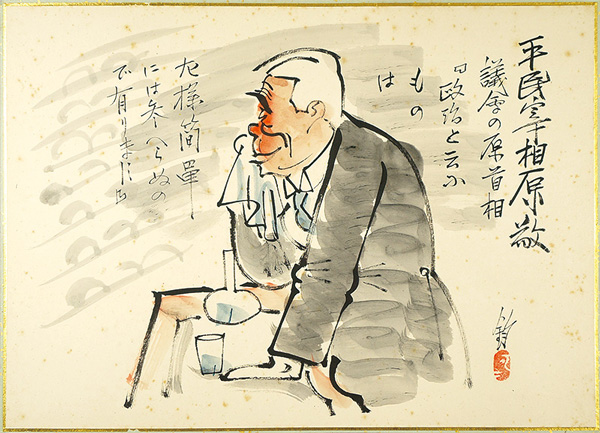 平民宰相原敬
議會の原首相
曰政治と云ふ
もの
は
左様簡単
には参へらぬの
で有ります